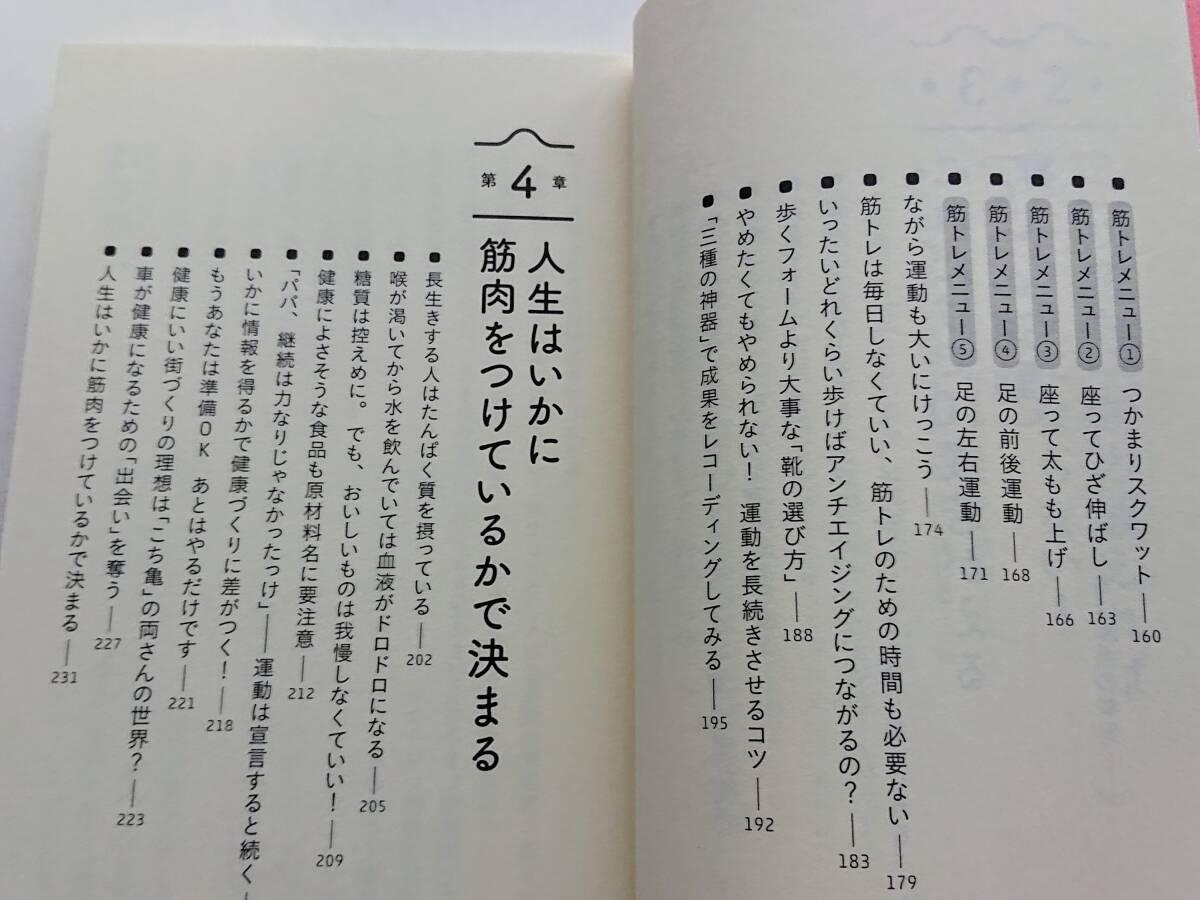 筋トレメニュー① つかまりスクワット――160
筋トレメニュー② 座ってひざ伸ばし――163
筋トレメニュー③ 座って太もも上げ――166
筋トレメニュー④ 足の前後運動――168
筋トレメニュー⑤ 足の左右運動――171
ながら運動も大いにけっこう――174
筋トレは毎日しなくていい、筋トレのための時間も必要ない――179
いったいどれくらい歩けばアンチエイジングにつながるの?――183
歩くフォームより大事な「靴の選び方」――188
やめたくてもやめられない! 運動を長続きさせるコツ――192
「三種の神器」で成果をレコーディングしてみる――195
第4章
人生はいかに
筋肉をつけているかで決まる
長生きする人はたんぱく質を摂っている――202
喉が渇いてから水を飲んでいては血液がドロドロになる――205
糖質は控えめに。でも、おいしいものは我慢しなくていい!――209
健康によさそうな食品も原材料名に要注意――212
「パパ、継続は力なりじゃなかったっけ」――運動は宣言すると続く―
いかに情報を得るかで健康づくりに差がつく!――218
もうあなたは準備OK あとはやるだけです――221
健康にいい街づくりの理想は「こち亀」の両さんの世界?――223
車が健康になるための「出会い」を奪う――227
人生はいかに筋肉をつけているかで決まる――231